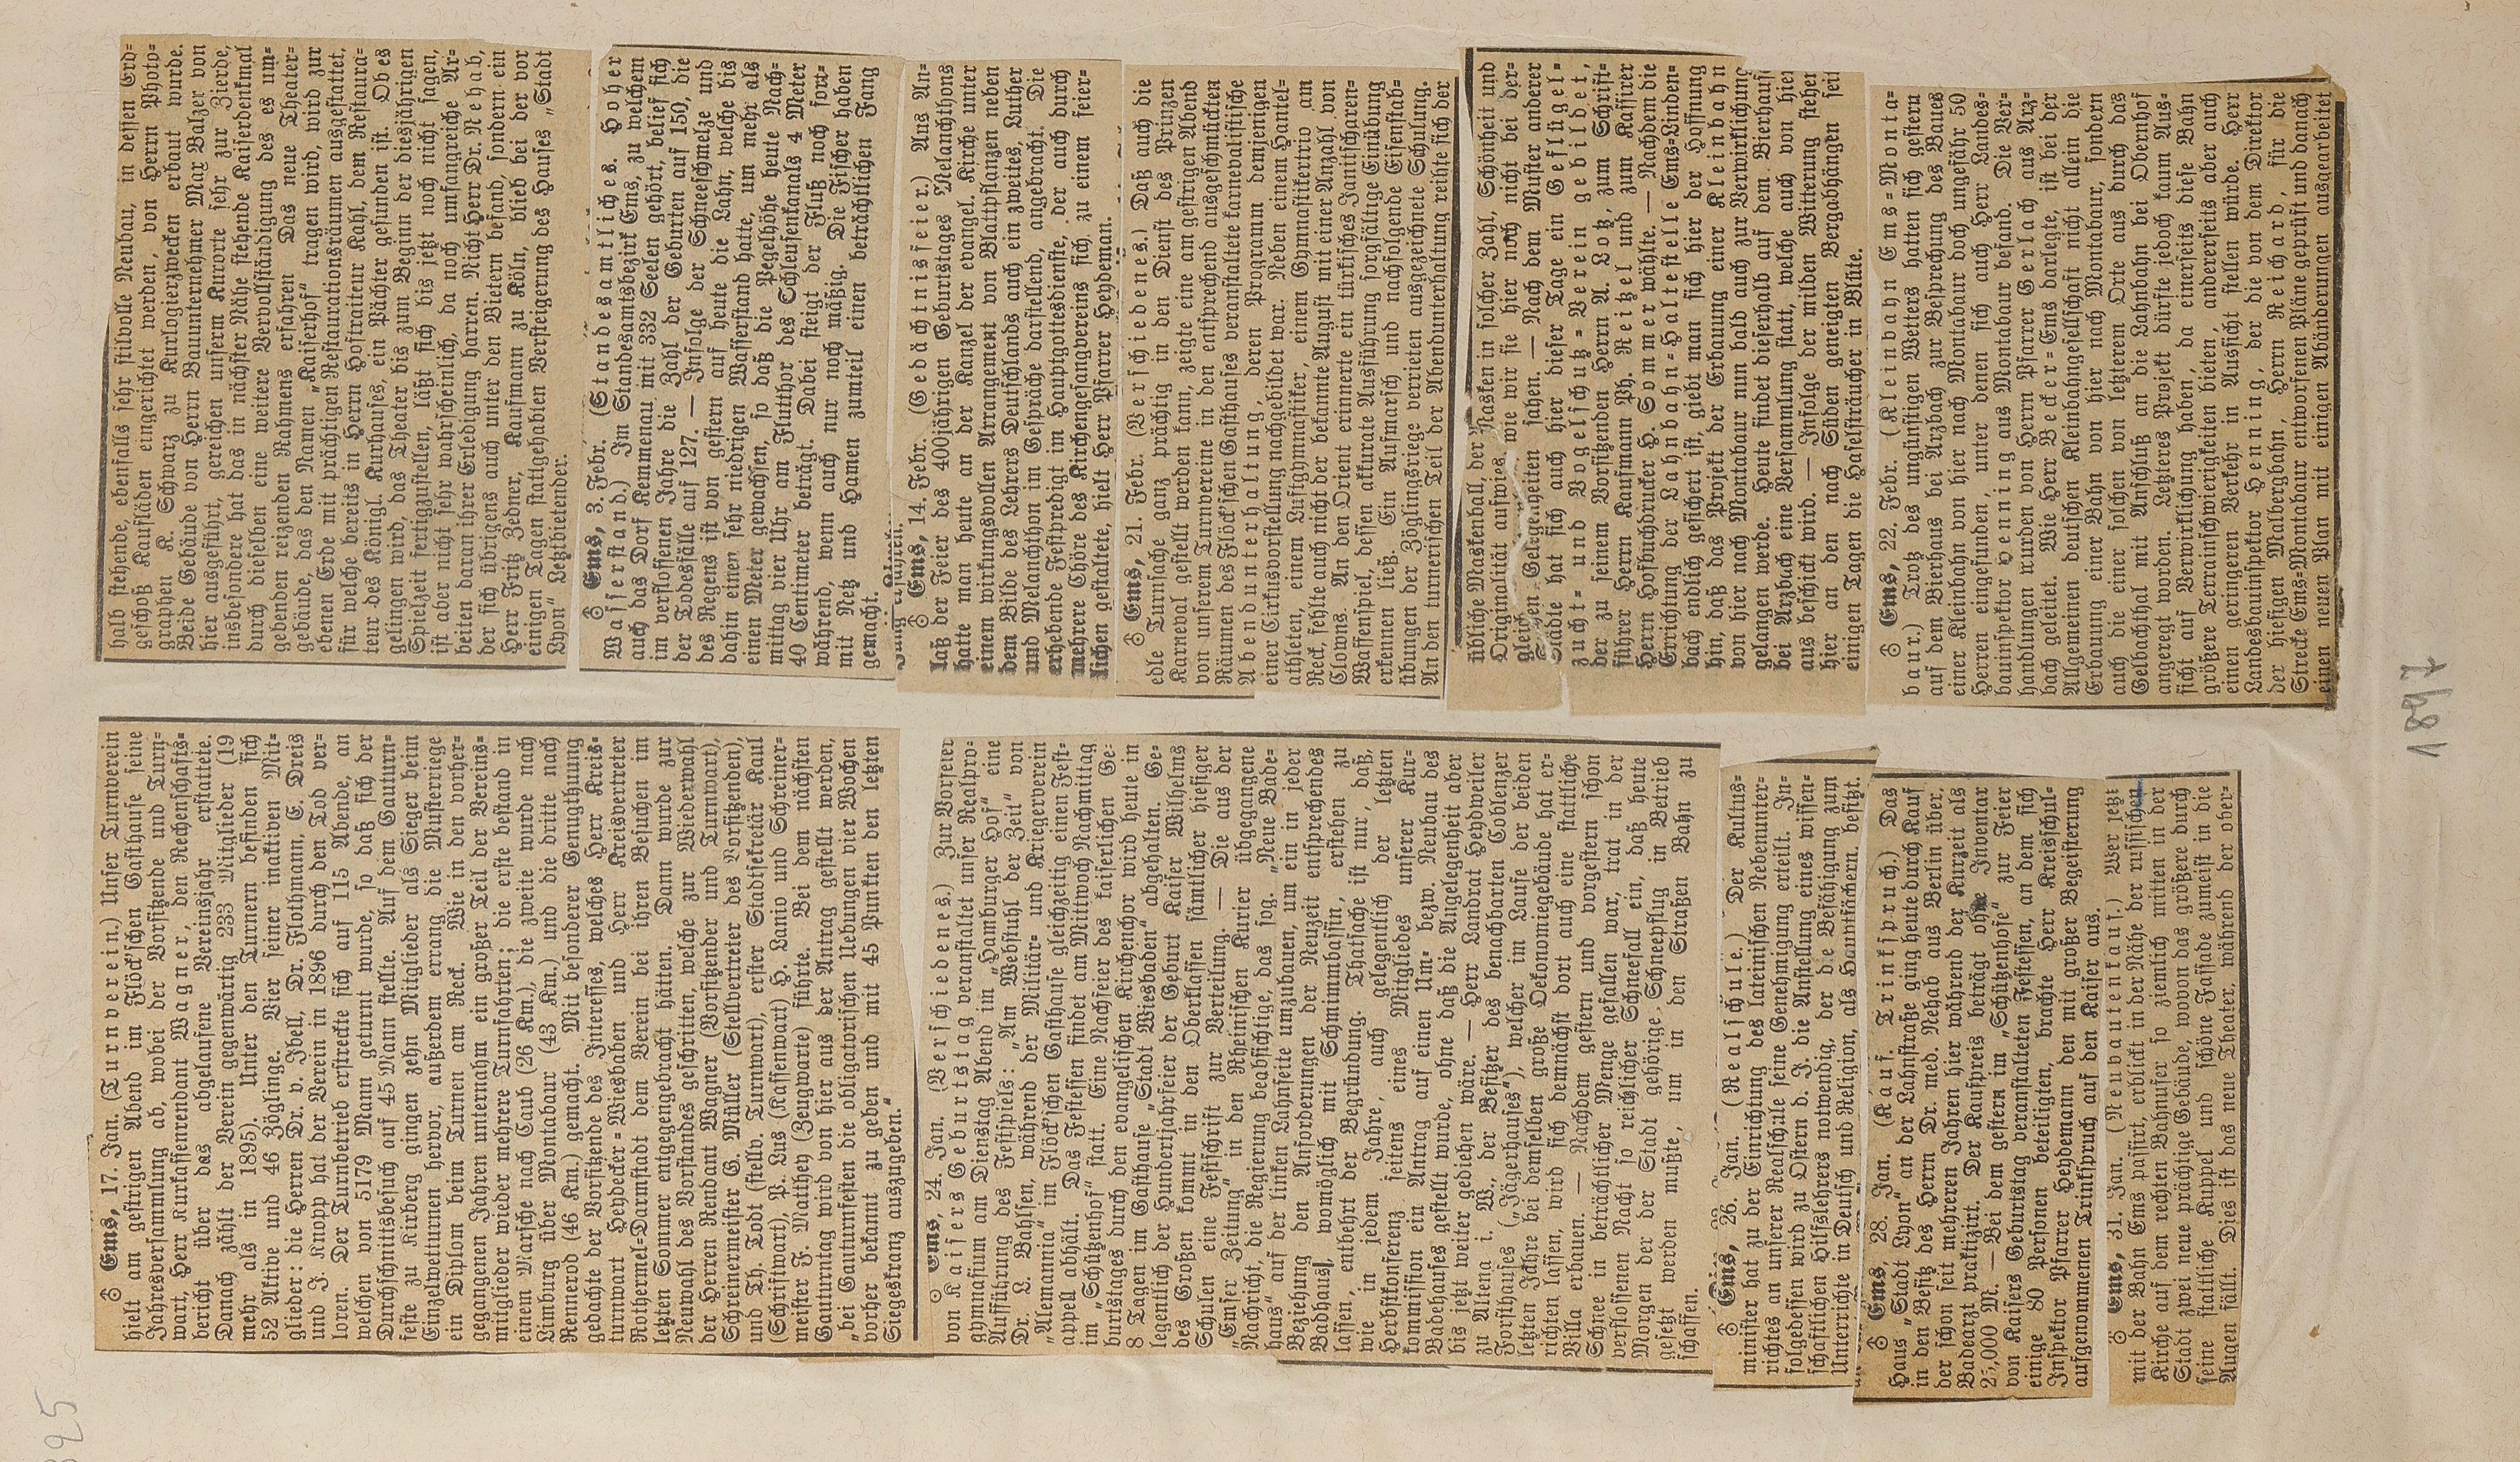 Ems, 17. Jan. (Turnverein.) Unser Turnverein
hielt am gestrigen Abend im Flöck'schen Gasthause seine
Jahresversammlung ab, wobei der Vorsitzende und Turn=
wart, Herr Kurkassenrendant Wagner, den Rechenschafts=
bericht über das abgelaufene Vereinsjahr erstattete.
Danach zählt der Verein gegenwärtig 233 Mitglieder (19
mehr als in 1895). Unter den Turnern befinden sich
52 Aktive und 46 Zöglinge. Vier seiner inaktiven Mit=
glieder: die Herren Dr. v. Ibell, Dr. Flothmann, E. Dreis
und J. Knopp hat der Verein in 1896 durch den Tod ver=
loren. Der Turnbetrieb erstreckte sich auf 115 Abende, an
welchen von 5179 Mann geturnt wurde, so daß sich der
Durchschnittsbesuch auf 45 Mann stellte. Auf dem Gauturn=
feste zu Kirberg gingen zehn Mitglieder als Sieger beim
Einzelwetturnen hervor, außerdem errang die Musterriege
ein Diplom beim Turnen am Reck. Wie in den vorher=
gegangenen Jahren unternahm ein großer Teil der Vereins=
mitglieder wieder mehrere Turnfahrten; die erste bestand in
einem Marsche nach Caub (26 Km.), die zweite wurde nach
Limburg über Montabaur (43 Km.) und die dritte nach
Rennerod (46 Km.) gemacht. Mit besonderer Genugthuung
gedachte der Vorsitzende des Interesses, welches Herr Kreis=
turnwart Heydecker=Wiesbaden und Herr Kreisvertreter
Rothermel=Darmstadt dem Verein bei ihren Besuchen im
letzten Sommer entgegengebracht hätten. Dann wurde zur
Neuwahl des Vorstandes geschritten, welche zur Wiederwahl
der Herren Rendant Wagner (Vorsitzender und Turnwart),
Schreinermeister G. Müller (Stellvertreter des Vorsitzenden),
und Th. Todt (stellv. Turnwart), erster Stadtsekretär Kaul
(Schriftwart), P. Lus (Kassenwart) H. Lanio und Schreiner=
meister F. Matthey (Zeugwarte) führte. Bei dem nächsten
Gauturntag wird von hier aus der Antrag gestellt werden,
„bei Gauturnfesten die obligatorischen Uebungen vier Wochen
vorher bekannt zu geben und mit 45 Punkten den letzten
Siegeskranz auszugeben."
Ems, 24. Jan. (Verschiedenes.) Zur Vorfeier
von Kaisers Geburtstag veranstaltet unser Realpro=
gymnasium am Dienstag Abend im „Hamburger Hof" eine
Aufführung des Festspiels: „Am Webstuhl der Zeit" von
Dr. L. Bahlsen, während der Militär= und Kriegerverein
„Alemannia" im Flöck'schen Gasthause gleichzeitig einen Fest=
appell abhält. Das Festessen findet am Mittwoch Nachmittag
im „Schützenhof" statt. Eine Nachfeier des kaiserlichen Ge=
burtstages durch den evangelischen Kirchenchor wird heute in
8 Tagen im Gasthause „Stadt Wiesbaden" abgehalten. Ge=
legentlich der Hundertjahrfeier der Geburt Kaiser Wilhelms
des Großen kommt in den Oberklassen sämtlicher hiesiger
Schulen eine Festschrift zur Verteilung. — Die aus der
„Emser Zeitung" in den Rheinischen Kurier übgegangene
Nachricht, die Regierung beabsichtige, das sog. „Neue Bade=
haus" auf der linken Lahnseite umzubauen, um ein in jeder
Beziehung den Anforderungen der Neuzeit entsprechendes
Badhaus, womöglich mit Schwimmbassin, erstehen zu
lassen, entbehrt der Begründung. Thatsache ist nur, daß,
wie in jedem Jahre, auch gelegentlich der letzten
Herbstkonferenz seitens eines Mitgliedes unserer Kur=
kommission ein Antrag auf einen Um= bezw. Neubau des
Badehauses gestellt wurde, ohne daß die Angelegenheit aber
bis jetzt weiter gediehen wäre. — Herr Landrat Heydweiler
zu Altena i. W., der Besitzer des benachbarten Coblenzer
Forsthauses („Jägerhauses"), welcher im Laufe der beiden
letzten Jahre bei demselben große Oekonomiegebäude hat er=
richten lassen, wird sich demnächst dort auch eine stattliche
Villa erbauen. — Nachdem gestern und vorgestern schon
Schnee in beträchtlicher Menge gefallen war, trat in der
verflossenen Nacht so reichlicher Schneefall ein, daß heute
Morgen der der Stadt gehörige Schneepflug in Betrieb
gesetzt werden mußte, um in den Straßen Bahn zu
schaffen.
Ems, 26. Jan. (Realschule.) Der Kultus=
minister hat zu der Einrichtung des lateinischen Nebenunter=
richtes an unserer Realschule seine Genehmigung erteilt. In=
folgedessen wird zu Ostern d. J. die Anstellung eines wissen=
schaftlichen Hilfslehrers notwendig, der die Befähigung zum
Unterrichte in Deutsch und Religion, als Hauptfächern, besitzt.
Ems, 28. Jan. (Kauf. Trinkspruch.) Das
Haus „Stadt Lyon" an der Lahnstraße ging heute durch Kauf
in den Besitz des Herrn Dr. med. Rehab aus Berlin über,
der schon seit mehreren Jahren hier während der Kurzeit als
Badearzt praktizirt. Der Kaufpreis beträgt ohne Inventar
,000 M. — Bei dem gestern im „Schützenhofe" zur Feier
von Kaisers Geburtstag veranstalteten Festessen, an dem sich
einige 80 Personen beteiligten, brachte Herr Kreisschul=
Inspektor Pfarrer Heydemann den mit großer Begeisterung
aufgenommenen Trinkspruch auf den Kaiser aus.
Ems, 31. Jan. (Neubautenkauf.) Wer jetzt
mit der Bahn Ems passirt, erblickt in der Nähe der russischen
Kirche auf dem rechten Bahnufer so ziemlich mitten in der
Stadt zwei neue prächtige Gebäude, wovon das größere durch
seine stattliche Kuppel und schöne Fassade zumeist in die
Augen fällt. Dies ist das neue Theater, während der ober=
halb stehende, ebenfalls sehr stilvolle Neubau, in dessen Erd=
geschoß Kaufläden eingerichtet werden, von Herrn Photo=
graphen K. Schwarz zu Kurlogierzwecken erbaut wurde.
Beide Gebäude von Herrn Bauunternehmer Max Balzer von
hier ausgeführt, gereichen unserm Kurorte sehr zur Zierde,
insbesondere hat das in nächster Nähe stehende Kaiserdenkmal
durch dieselben eine weitere Vervollständigung des es um=
gebenden reizenden Rahmens erfahren. Das neue Theater=
gebäude, das den Namen „Kaiserhof" tragen wird, wird zur
ebenen Erde mit prächtigen Restaurationsräumen ausgestattet,
für welche bereits in Herrn Hoftraiteur Kahl, dem Restaura=
teur des Königl. Kurhauses, ein Pächter gefunden ist. Ob es
gelingen wird, das Theater bis zum Beginn der diesjährigen
Spielzeit fertigzustellen, läßt sich bis jetzt noch nicht sagen,
ist aber nicht sehr wahrscheinlich, da noch umfangreiche Ar=
beiten daran ihrer Erledigung harren. Nicht Herr Dr. Rehab,
der sich übrigens auch unter den Bietern befand, sondern ein
Herr Fritz Zedner, Kaufmann zu Köln, blieb bei der vor
einigen Tagen stattgehabten Versteigerung des Hauses „Stadt
Lyon" Letztbietender.
Ems, 3. Febr. (Standesamtliches. Hoher
Wasserstand.) Im Standesamtsbezirk Ems, zu welchem
auch das Dorf Kemmenau mit 332 Seelen gehört, belief sich
im verflossenen Jahre die Zahl der Geburten auf 150, die
der Todesfälle auf 127. — Infolge der Schneeschmelze und
des Regens ist von gestern auf heute die Lahn, welche bis
dahin einen sehr niedrigen Wasserstand hatte, um mehr als
einen Meter gewachsen, so daß die Pegelhöhe heute Nach=
mittag vier Uhr am Flutthor des Schleusenkanals 4 Meter
40 Centimeter beträgt. Dabei steigt der Fluß noch fort=
während, wenn auch nur noch mäßig. Die Fischer haben
mit Netz und Hamen zumteil einen beträchtlichen Fang
gemacht.
Ems, 14. Febr. (Gedächtnisfeier.) Aus An=
laß der Feier des 400jährigen Geburtstages Melanchthons
hatte man heute an der Kanzel der evangel. Kirche unter
einem wirkungsvollen Arrangement von Blattpflanzen neben
dem Bilde des Lehrers Deutschlands auch ein zweites, Luther
und Melanchthon im Gespräche darstellend, angebracht. Die
erhebende Festpredigt im Hauptgottesdienste, der auch durch
mehrere Chöre des Kirchengesangvereins sich zu einem feier=
lichen gestaltete, hielt Herr Pfarrer Heydeman.
Ems, 21. Febr. (Verschiedenes.) Daß auch die
edle Turnsache ganz prächtig in den Dienst des Prinzen
Karneval gestellt werden kann, zeigte eine am gestrigen Abend
von unserem Turnvereine in den entsprechend ausgeschmückten
Räumen des Flöck'schen Gasthauses veranstaltete karnevalistische
Abendunterhaltung, deren Programm demjenigen
einer Cirkusvorstellung nachgebildet war. Neben einem Hantel=
athleten, einem Luftgymnastiker, einem Gymnastikertrio am
Reck, fehlte auch nicht der bekannte August mit einer Anzahl von
Clowns. An den Orient erinnerte ein türkisches Janitscharen=
Waffenspiel, dessen akkurate Ausführung sorgfältige Einübung
erkennen ließ. Ein Aufmarsch und nachfolgende Eisenstab=
übungen der Zöglingsriege verrieten ausgezeichnete Schulung.
An den turnerischen Teil der Abendunterhaltung reihte sich der
übliche Maskenball, der Masken in solcher Zahl, Schönheit und
Originalität aufwies, wie wir sie hier noch nicht bei der=
gleichen Gelegenheiten sahen. — Nach dem Muster anderer
Städte hat sich auch hier dieser Tage ein Geflügel=
zucht= und Vogelschutz=Verein gebildet,
der zu seinem Vorsitzenden Herrn A. Lotz, zum Schrift=
führer Herrn Kaufmann Ph. Reitzel und zum Kassirer
Herrn Hofbuchdrucker H. Sommer wählte. — Nachdem die
Errichtung der Lahnbahn=Haltestelle Ems=Linden=
bach endlich gesichert ist, giebt man sich hier der Hoffnung
hin, daß das Projekt der Erbauung einer Kleinbahn
von hier nach Montabaur nun bald auch zur Verwirklichung
gelangen werde. Heute findet dieserhalb auf dem Bierhaus
bei Arzbach eine Versammlung statt, welche auch von hier
aus beschickt wird. — Infolge der milden Witterung stehen
hier an den nach Süden geneigten Bergabhängen seit
einigen Tagen die Haselsträucher in Blüte.
Ems, 22. Febr. (Kleinbahn Ems=Monta=
baur.) Trotz des ungünstigen Wetters hatten sich gestern
auf dem Bierhaus bei Arzbach zur Besprechung des Baues
einer Kleinbahn von hier nach Montabaur doch ungefähr 50
Herren eingefunden, unter denen sich auch Herr Landes=
bauinspektor Henning aus Montabaur befand. Die Ver=
handlungen wurden von Herrn Pfarrer Gerlach aus Arz=
bach geleitet. Wie Herr Becker=Ems darlegte, ist bei der
Allgemeinen deutschen Kleinbahngesellschaft nicht allein die
Erbauung einer Bahn von hier nach Montabaur, sondern
auch die einer solchen von letzterem Orte aus durch das
Gelbachthal mit Anschluß an die Lahnbahn bei Obernhof
angeregt worden. Letzteres Projekt dürfte jedoch kaum Aus=
sicht auf Verwirklichung haben, da einerseits diese Bahn
größere Terrainschwierigkeiten bieten, andererseits aber auch
einen geringeren Verkehr in Aussicht stellen würde. Herr
Landesbauinspektor Henning, der die von dem Direktor
der hiesigen Malbergbahn, Herrn Reichard, für die
Strecke Ems=Montabaur entworfenen Pläne geprüft und danach
einen neuen Plan mit einigen Abänderungen ausgearbeitet
1897